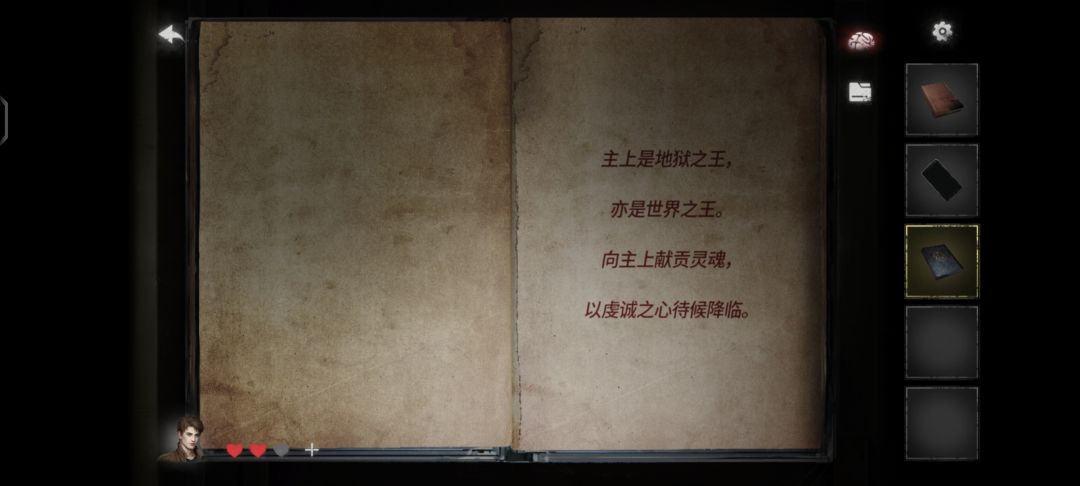 主上是地狱之王，
亦是世界之王。
向主上献贡灵魂，
以虔诚之心待候降临。